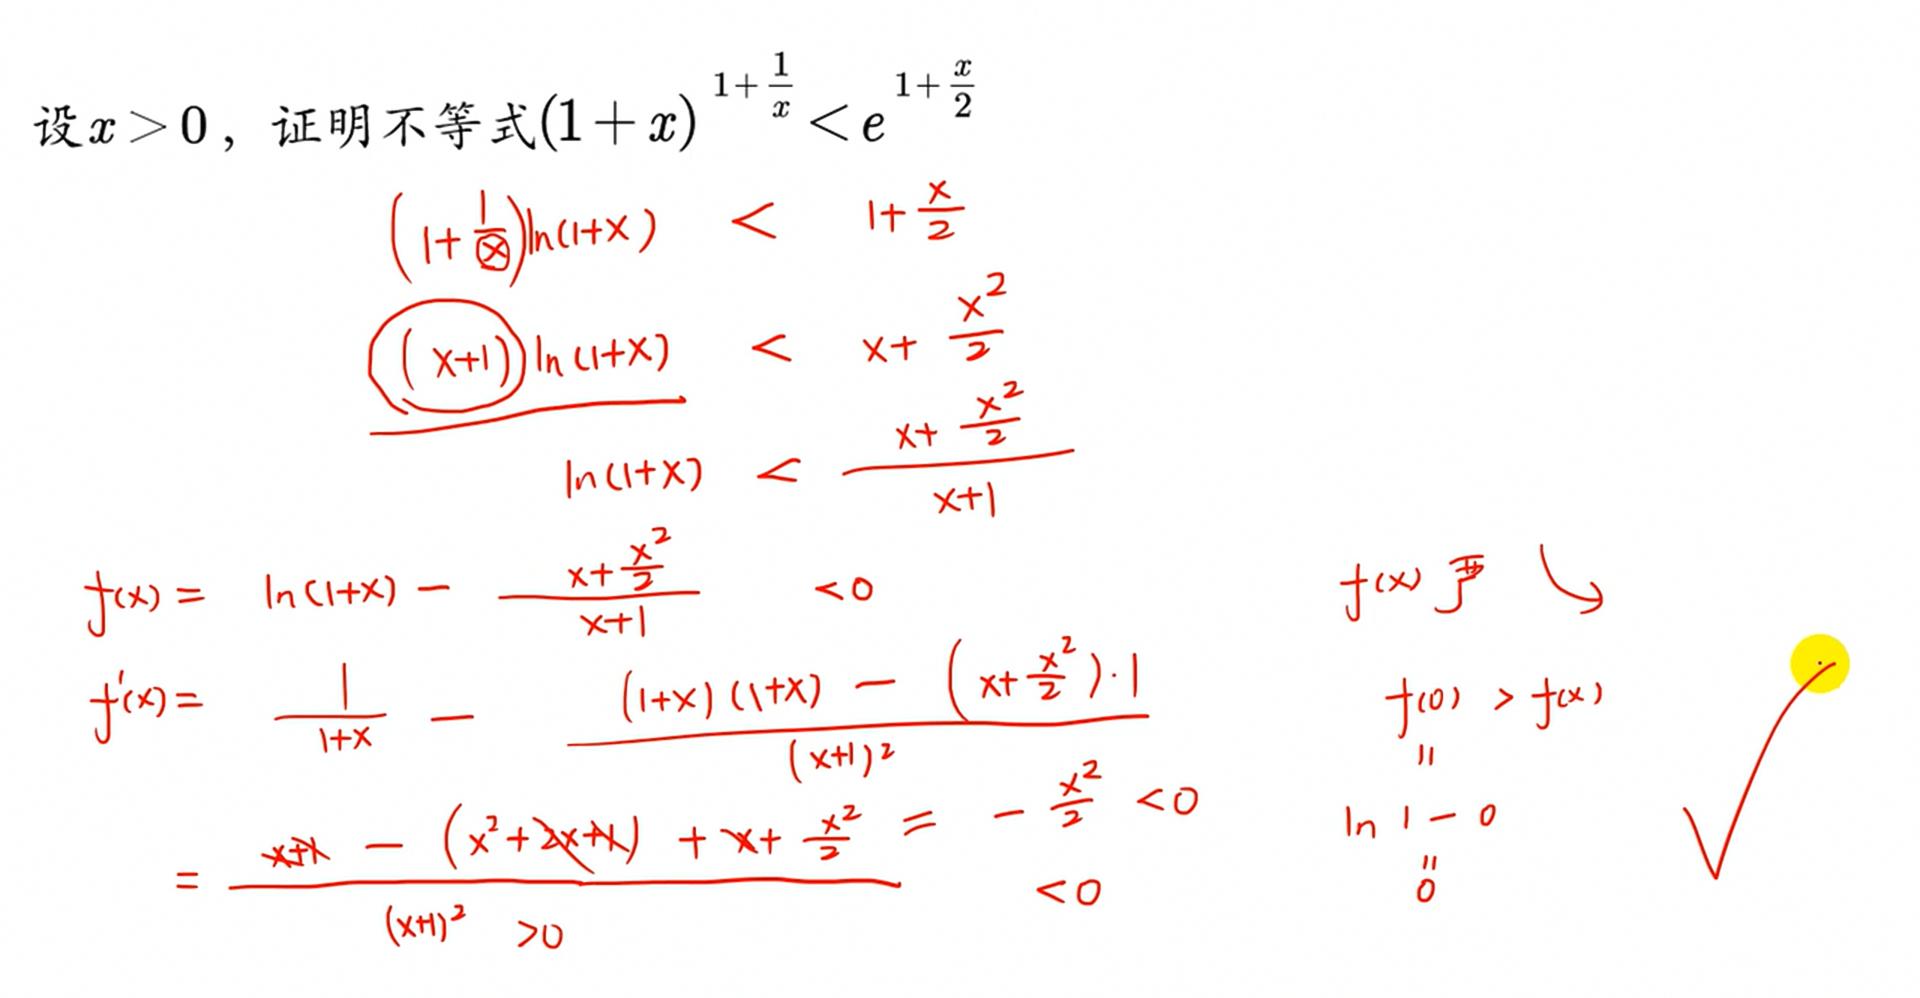 设x>0，证明不等式(1+x)^{1+\frac{1}{x}}<e^{1+\frac{x}{2}}
(1+\frac{1}{x})ln(1+x) < 1+\frac{x}{2}
(x+1)ln(1+x) < x+\frac{x^2}{2}
ln(1+x) < \frac{x+\frac{x^2}{2}}{x+1}
f(x) = ln(1+x) - \frac{x+\frac{x^2}{2}}{x+1} <0
f'(x) = \frac{1}{1+x} - \frac{(1+x)(1+x) - (x+\frac{x^2}{2})·1}{(x+1)^2}
= \frac{x+1 - (x^2+2x+1) + x+\frac{x^2}{2}}{(x+1)^2 >0} = -\frac{x^2}{2} <0
<0
f(x) 严 ↘
f(0) > f(x)
=
ln 1 - 0
=
0